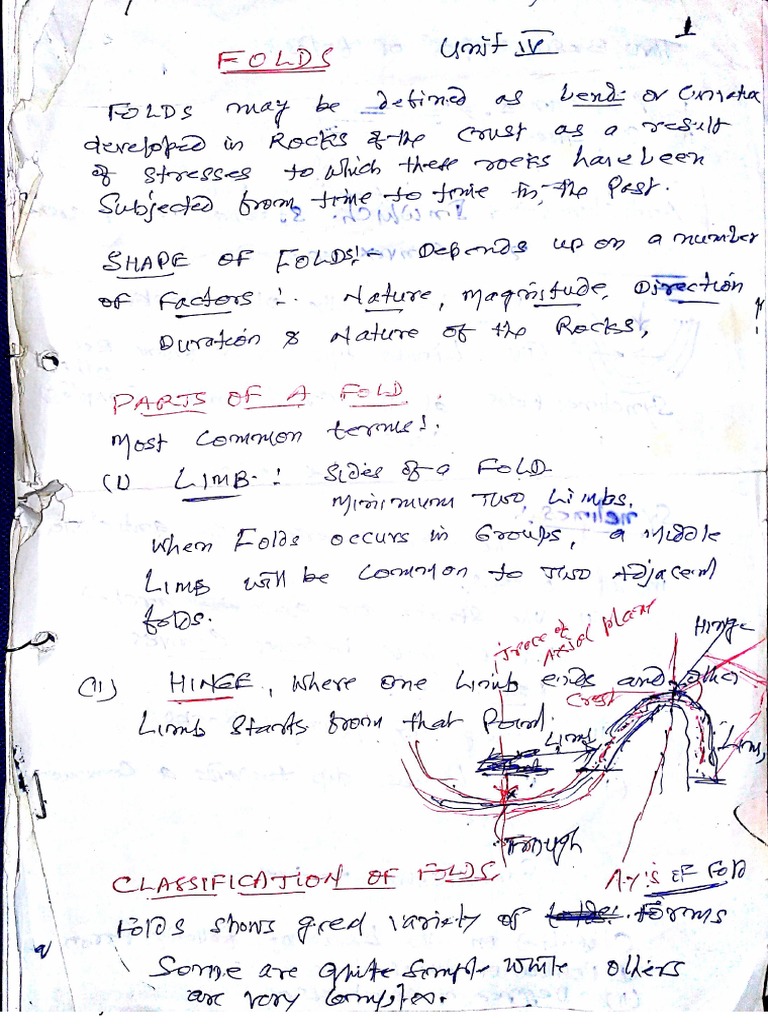 1
FOLDS Unit IV
FOLDS may be defined as bend or
developed in Rocks of the crust as a result
of stresses to which these rocks have been
Subjected from time to time in, the Past.
SHAPE OF FOLDS:- Depends up on a number
of Factors :. Nature, Magnitude, Direction
Duration & Nature of the Rocks,
PARTS OF A FOLD.
Most Common terms:.
(1) LIMB. : Sides of a FOLD
Minimum Two Limbs.
When Folds occurs in Groups, a Middle
Limb will be Common to Two Adjacent
folds.
Hinge
Trace of
Axial plane
(11) HINGE, Where one Limb ends and other
Crest
Limb Starts from that Point.
Limb
Limb
Trough
CLASSIFICATION OF FOLDS
Axis of Fold
Folds shows great variety of Forms
Some are quite Simple while others
are very Complex.